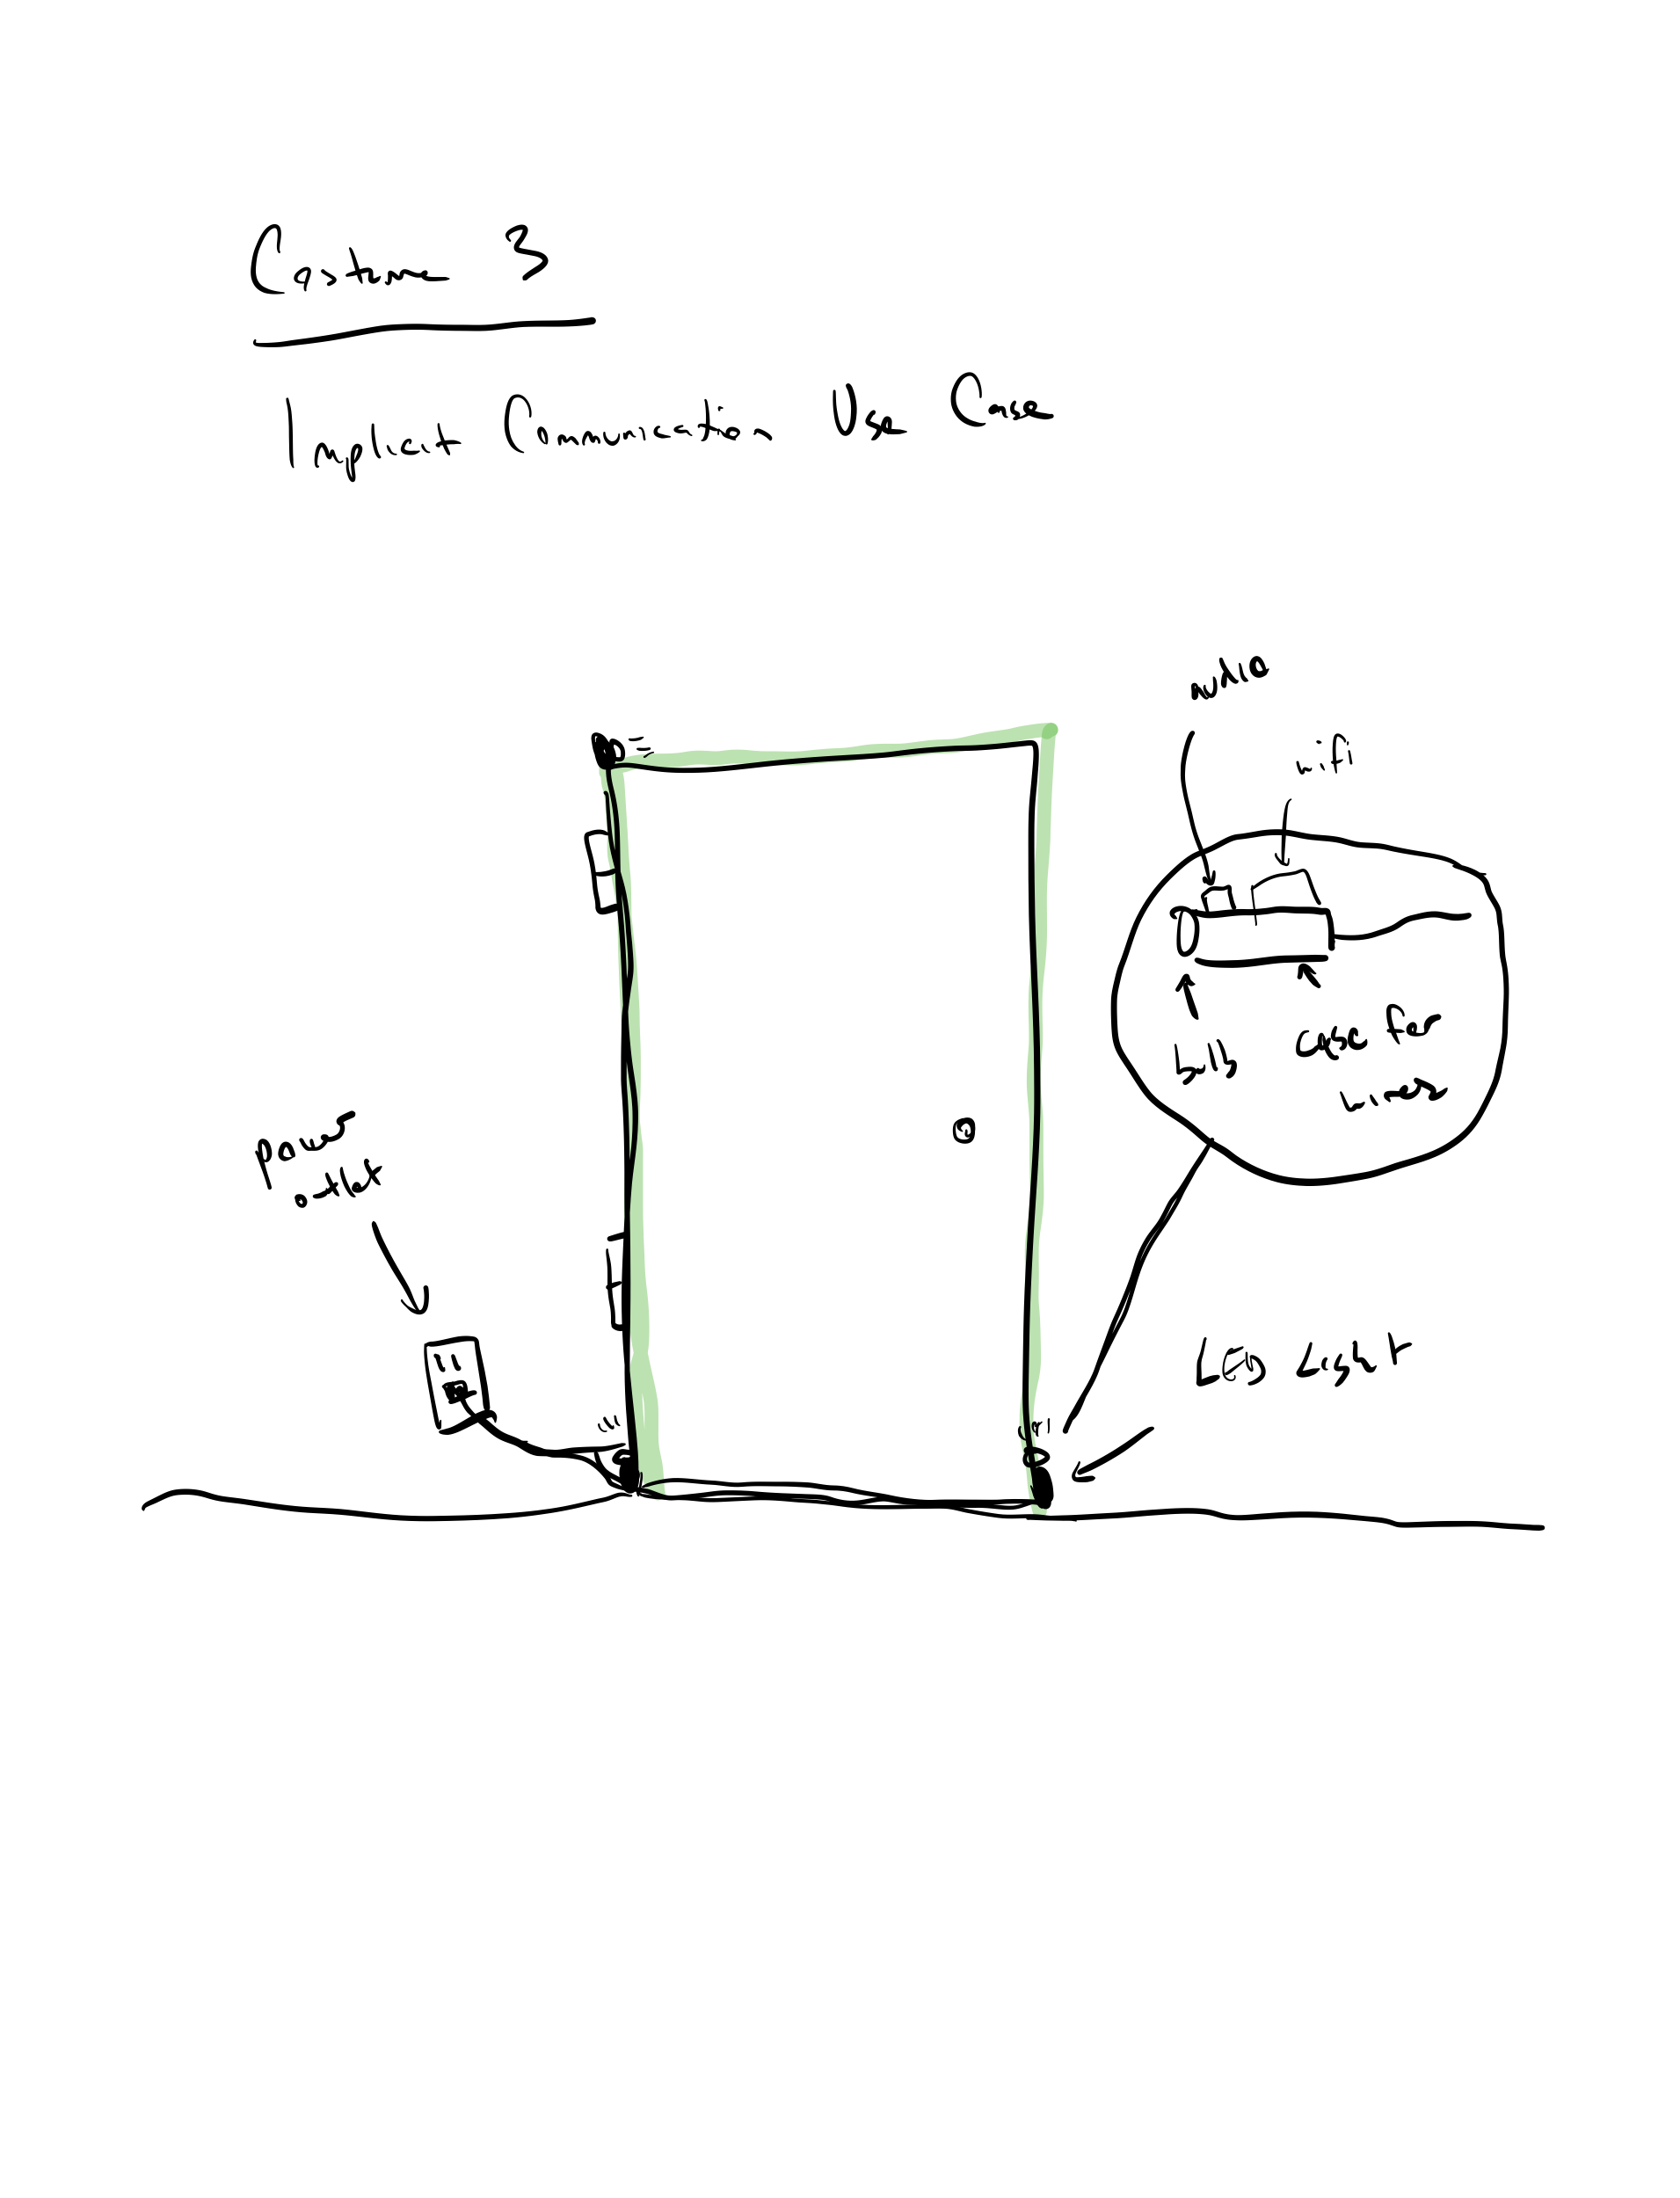 Custom 3
Implicit Communication Use Case
audio
wifi
bulb
case for
wires
power
outlet
LED Light